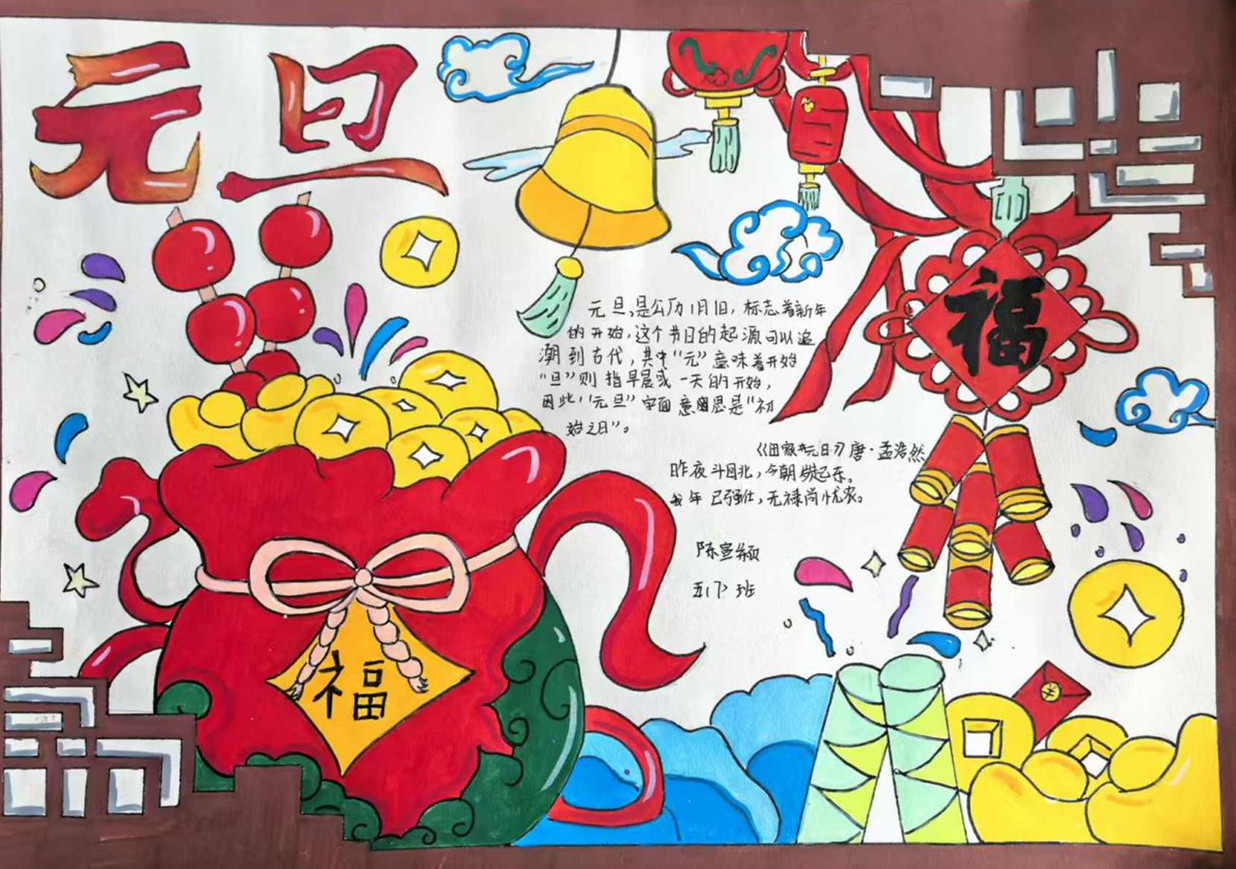 元旦
元旦,是公历1月1日,标志着新年
的开始,这个节日的起源可以追
溯到古代,其中“元”意味着开始
“旦”则指早晨或一天的开始,
因此,“元旦”字面意思是“初
始之日”。
福
《田家元日》唐·孟浩然
昨夜斗回北,今朝岁起东。
我年已强仕,无禄尚忧农。
陈宣颖
五(7)班
福